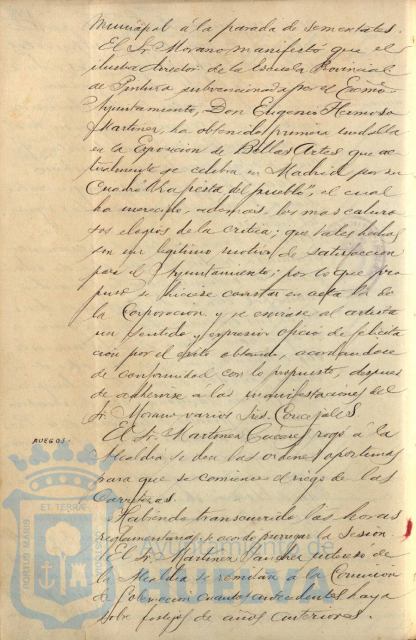 Municipal á la parada de sementales.
El Sr. Morano, manifestó que el
ilustre director de la Escuela Provincial
de Pintura subvencionada por el Excmo
Ayuntamiento, Don Eugenio Hermoso
Martinez, ha obtenido primera medalla
en la Exposicion de Bellas Artes que ac-
tualmente se celebra en Madrid por su
cuadro "La fiesta del pueblo", el cual
ha merecido, además, los mas caluro-
sos elogios de la critica; que tales hechos
son un legitimo motivo de satisfaccion
para el Ayuntamiento; por lo que pro-
puso se hiciese constar en acta
la Corporacion y se enviase al artista
un sentido y expresivo oficio de felicita-
ción por el éxito obtenido, acordandose
de conformidad con lo propuesto, despues
de adherirse a las manifestaciones del
Sr. Morano varios Sres. Concejales.
RUEGOS.-
El Sr. Martinez Cacere, rogó á la
Alcaldia se den las ordenes oportunas
para que se comience el riego de las
Carreteras.
Habiendo transcurrido las horas
reglamentarias se acordó prorrogar la sesión
El Sr. Martinez Sanchez de
la Alcaldia se remitan á la Comision
de Colonación cuantos antecedentes haya
sobre festejos de años anteriores.
PORTUS MARIS
ET TERRAE
CUSTODIA
Ayuntamiento de